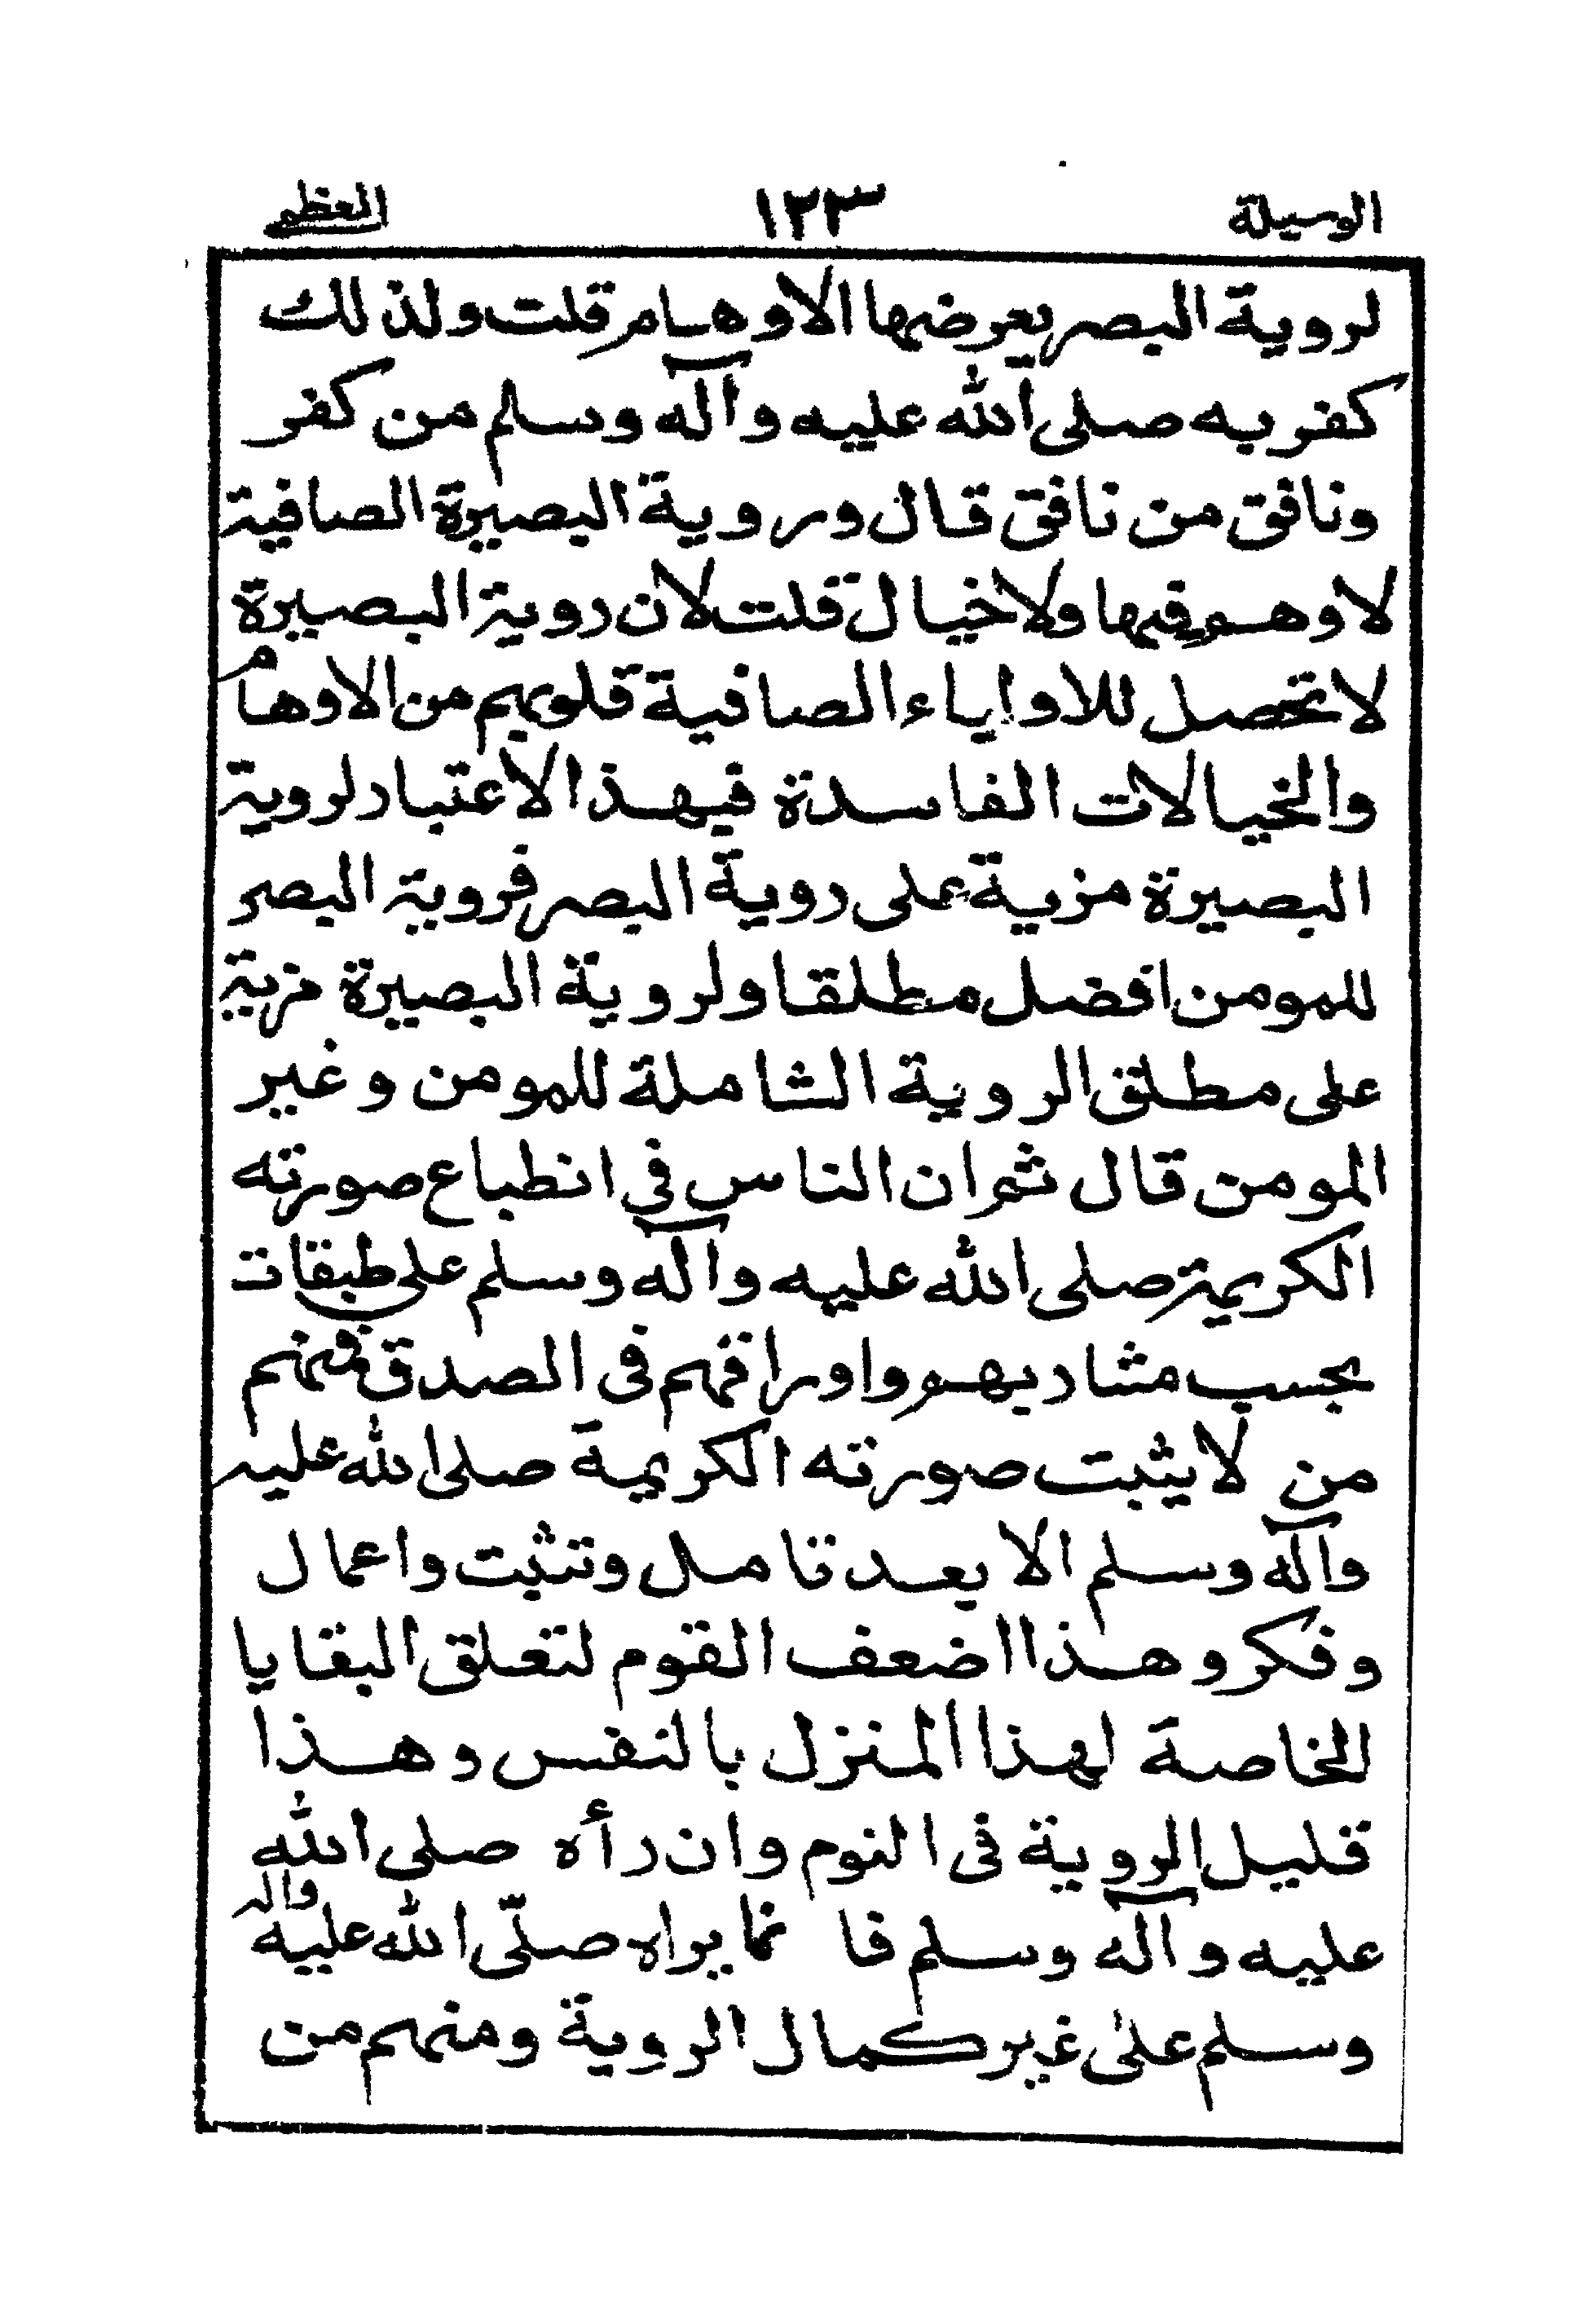 الوسيلة ١٢٣ العظمى
لروية البصر يعرضها الاوهام قلت ولذلك
كفر به صلى الله عليه وآله وسلم من كفر
ونافق من نافق قال وروية البصيرة الصافية
لا وهم فيها ولا خيال قلت لان روية البصيرة
لا تحصل للاولياء الصافية قلوبهم من الاوهام
والخيالات الفاسدة فبهذا الاعتبار لروية
البصيرة مزية على روية البصر فروية البصر
للمومن افضل مطلقا ولروية البصيرة مزية
على مطلق الروية الشاملة للمومن وغير
المومن قال ثم ان الناس فى انطباع صورته
الكريمة صلى الله عليه وآله وسلم على طبقات
بحسب مشاربهم واورافهم فى الصدق فمنهم
من لا يثبت صورته الكريمة صلى الله عليه
وآله وسلم الا بعد تامل وتثبت واعمال
وفكر وهذا اضعف القوم لتعلق البقايا
الخاصة لهذا المنزل بالنفس وهذا
قليل الروية فى النوم وان رأه صلى الله
عليه وآله وسلم فا نما يراه صلّى الله عليه واله
وسلم على غير كمال الروية ومنهم من